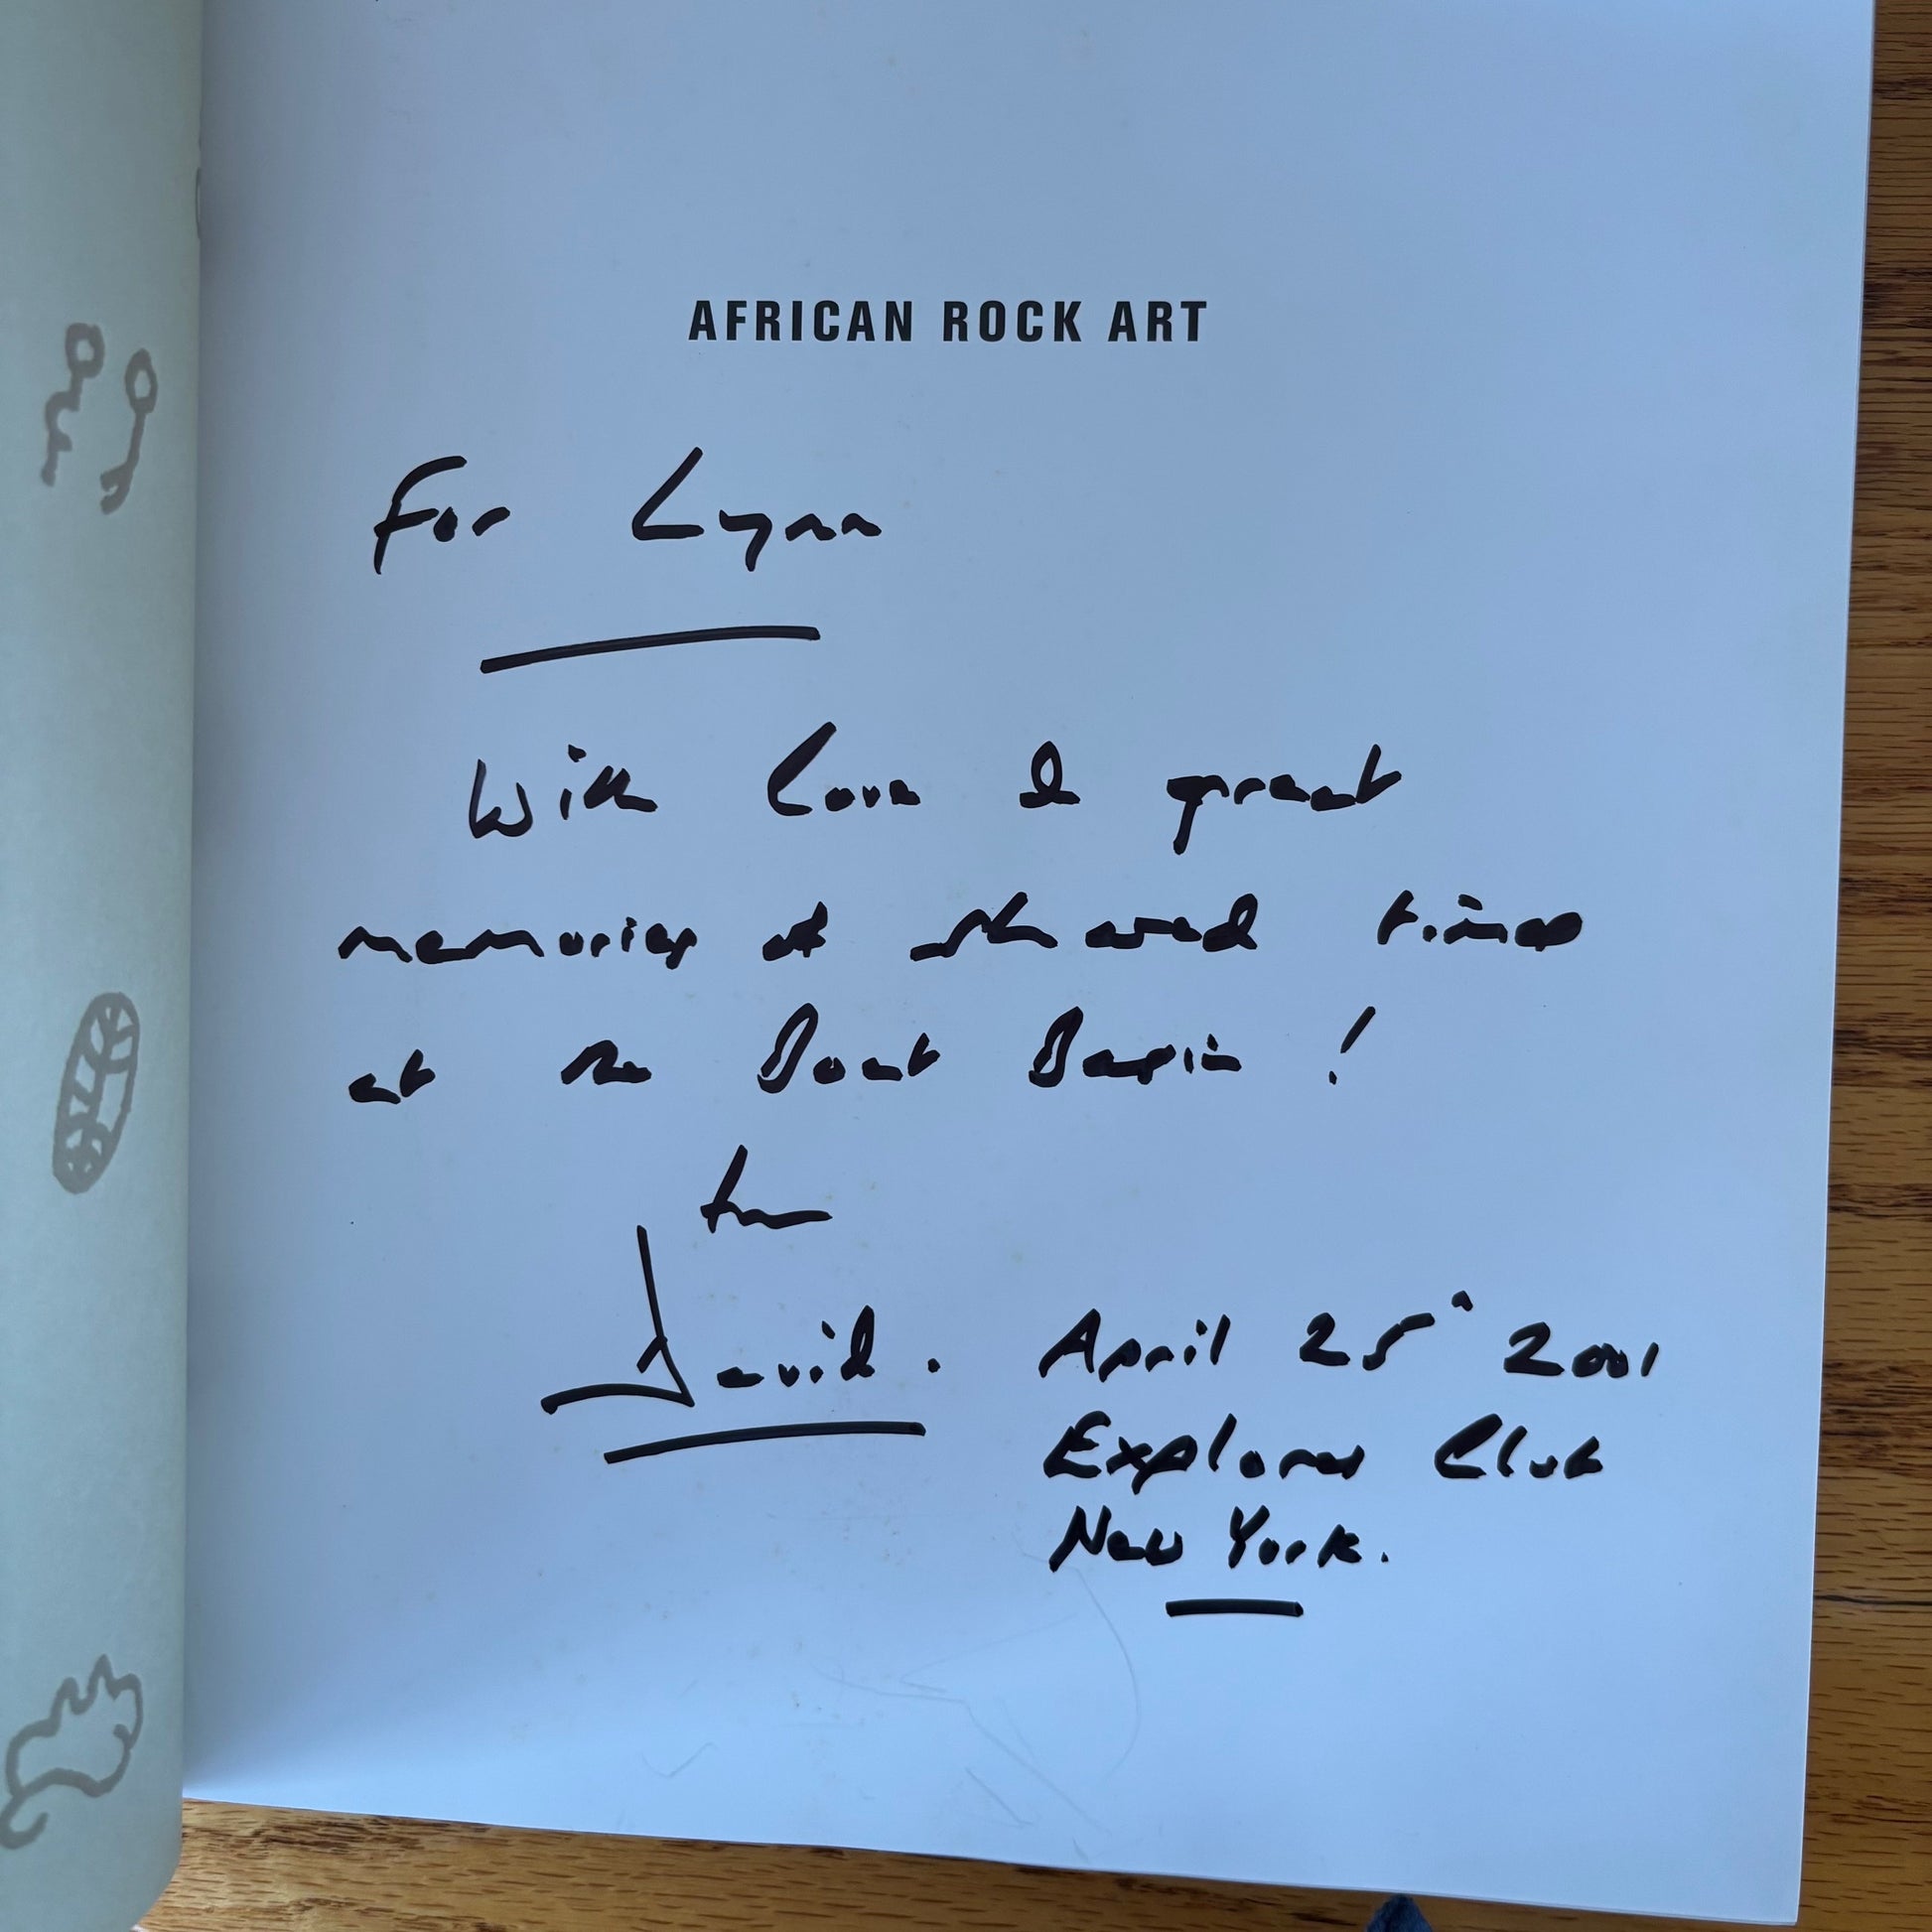 AFRICAN ROCK ART
For Lynn
With love & great
memories of shared times
at the Boat Basin!
from
David.
April 25 2001
Explorers Club
New York.